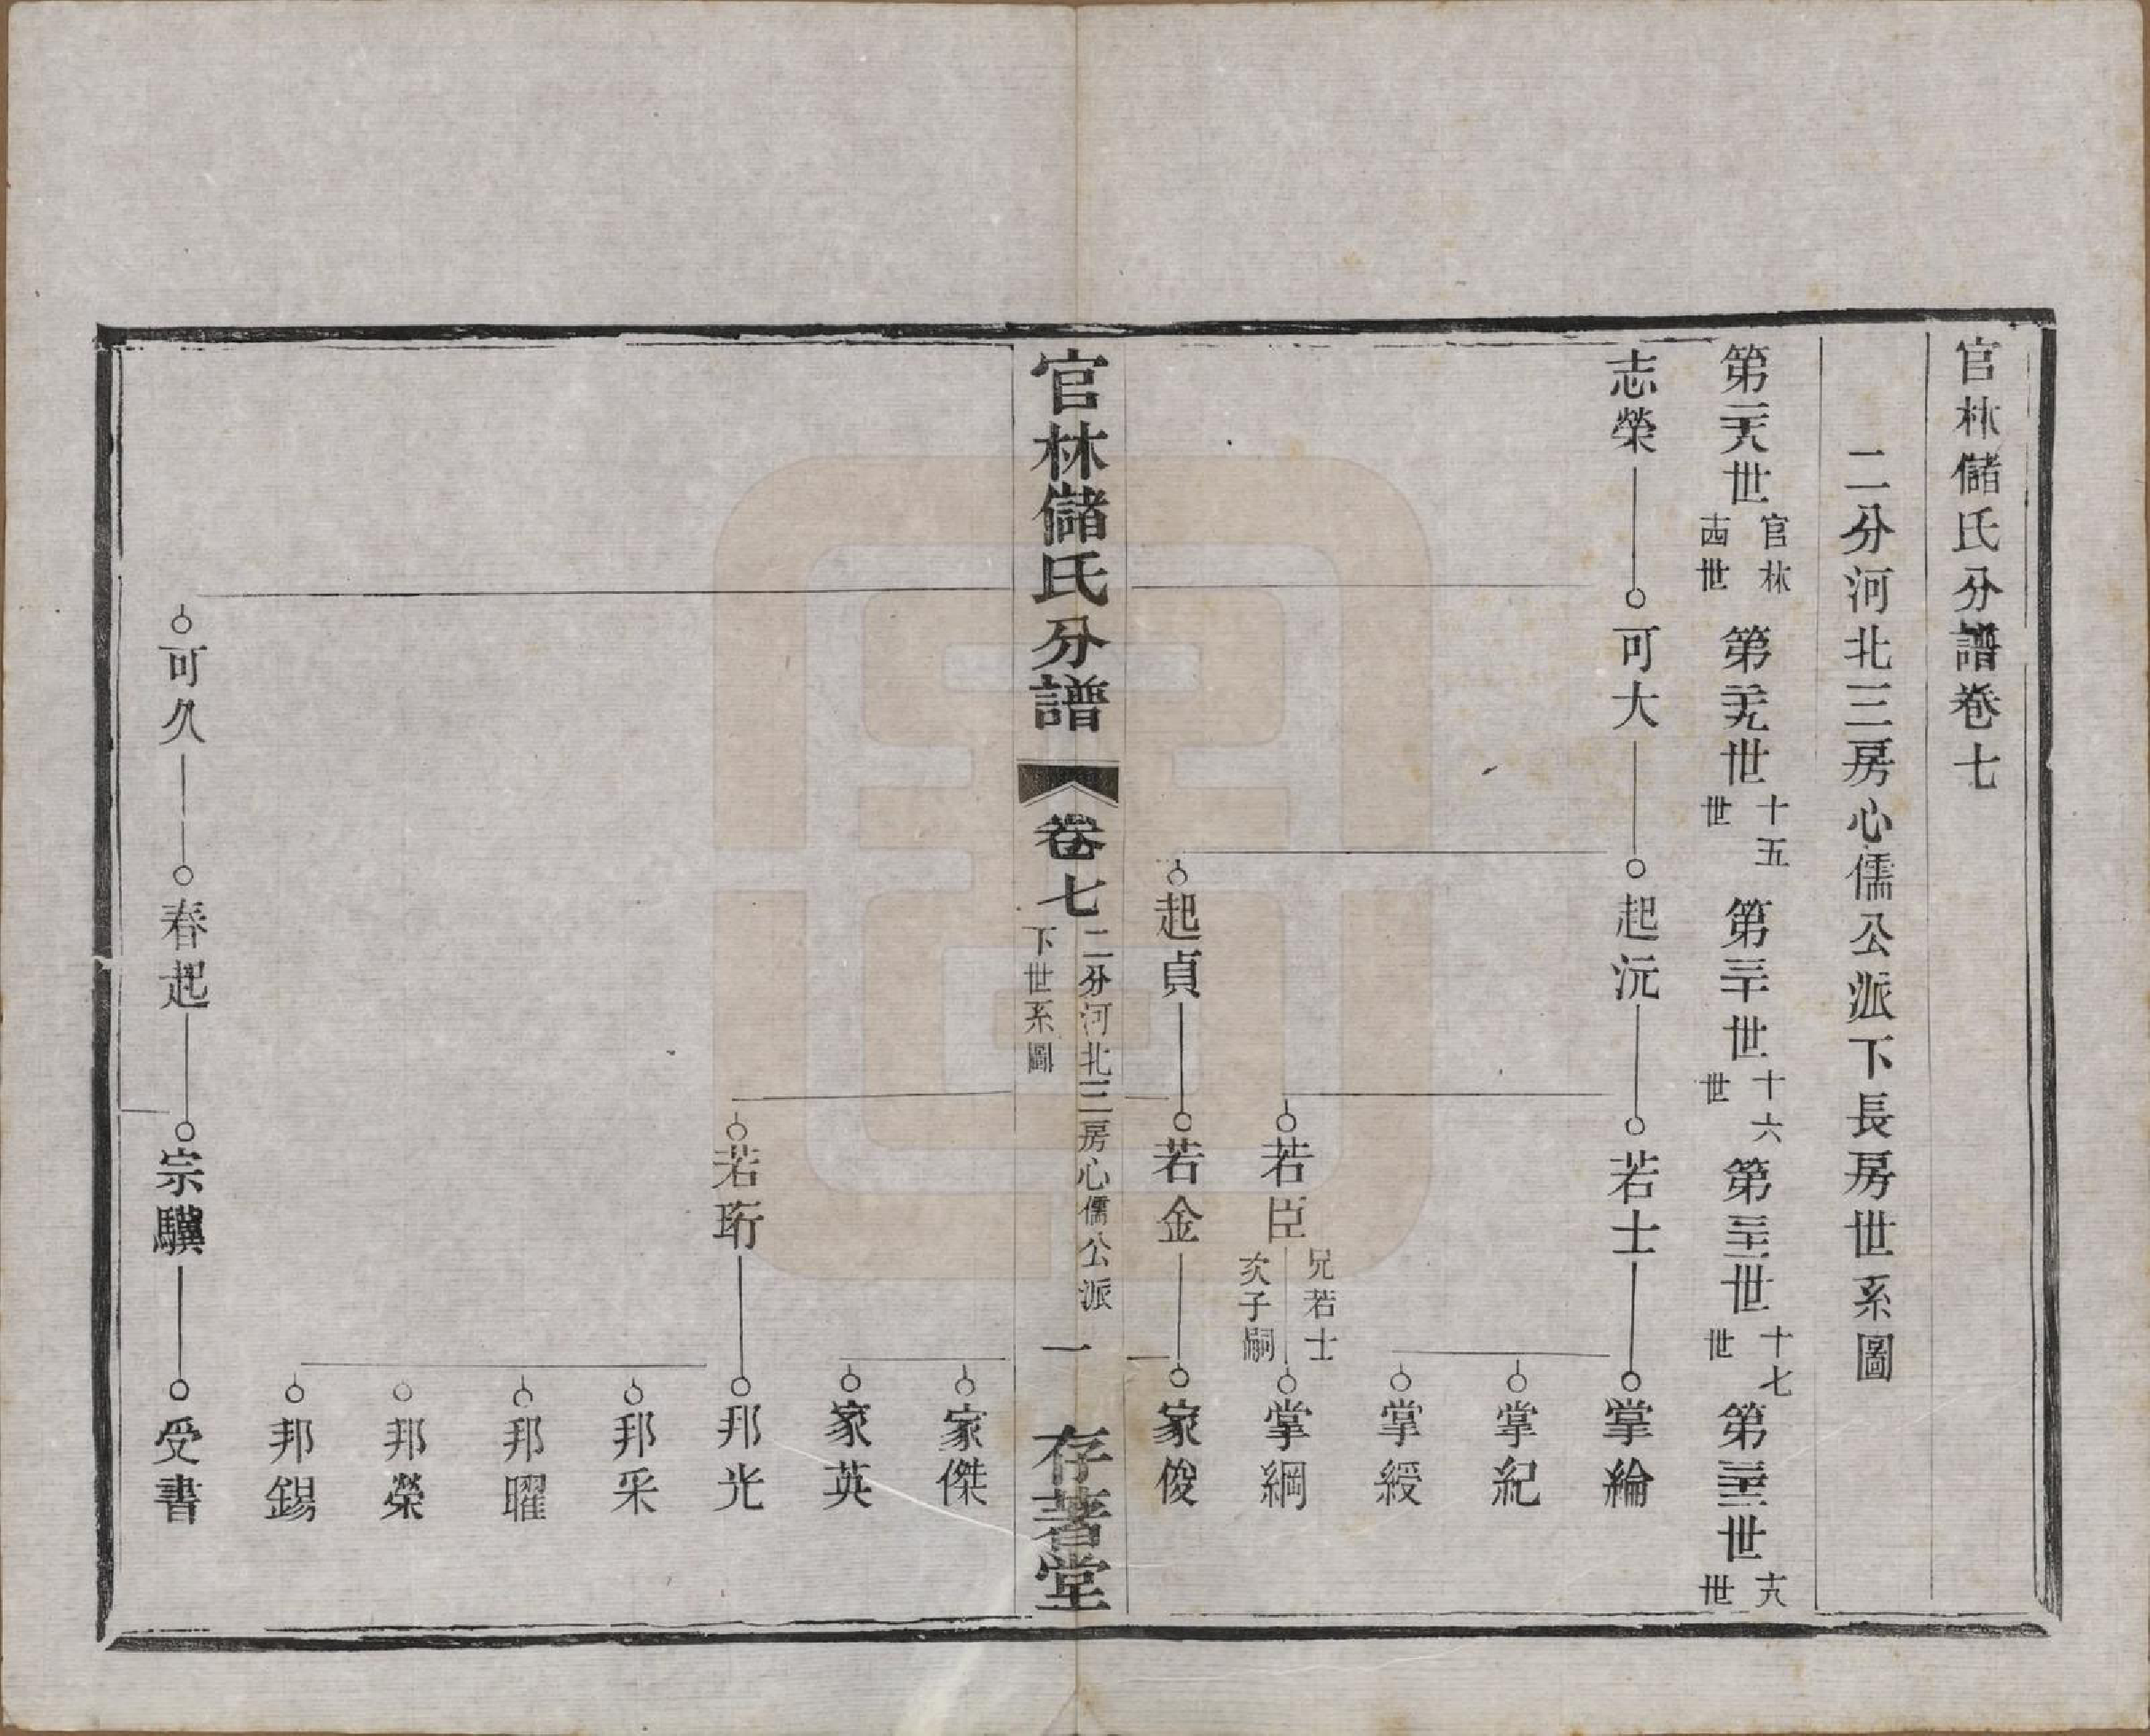 官林儲氏分譜卷七
二分河北三房心儒公派下長房世系圖
第二十八世 官林十四世 第二十九世 十五世 第三十世 十六世 第三十一世 十七世 第三十二世 十八世
志榮 可大 起沅 若士 掌綸
掌紀
掌綬
若臣 兄若士次子嗣 掌綱
起貞 若金 家俊
官林儲氏分譜 卷七 二分河北三房心儒公派下世系圖 一 存著堂
家傑
家英
若珩 邦光
邦采
邦曜
邦榮
邦錫
可久 春起 宗驥 受書